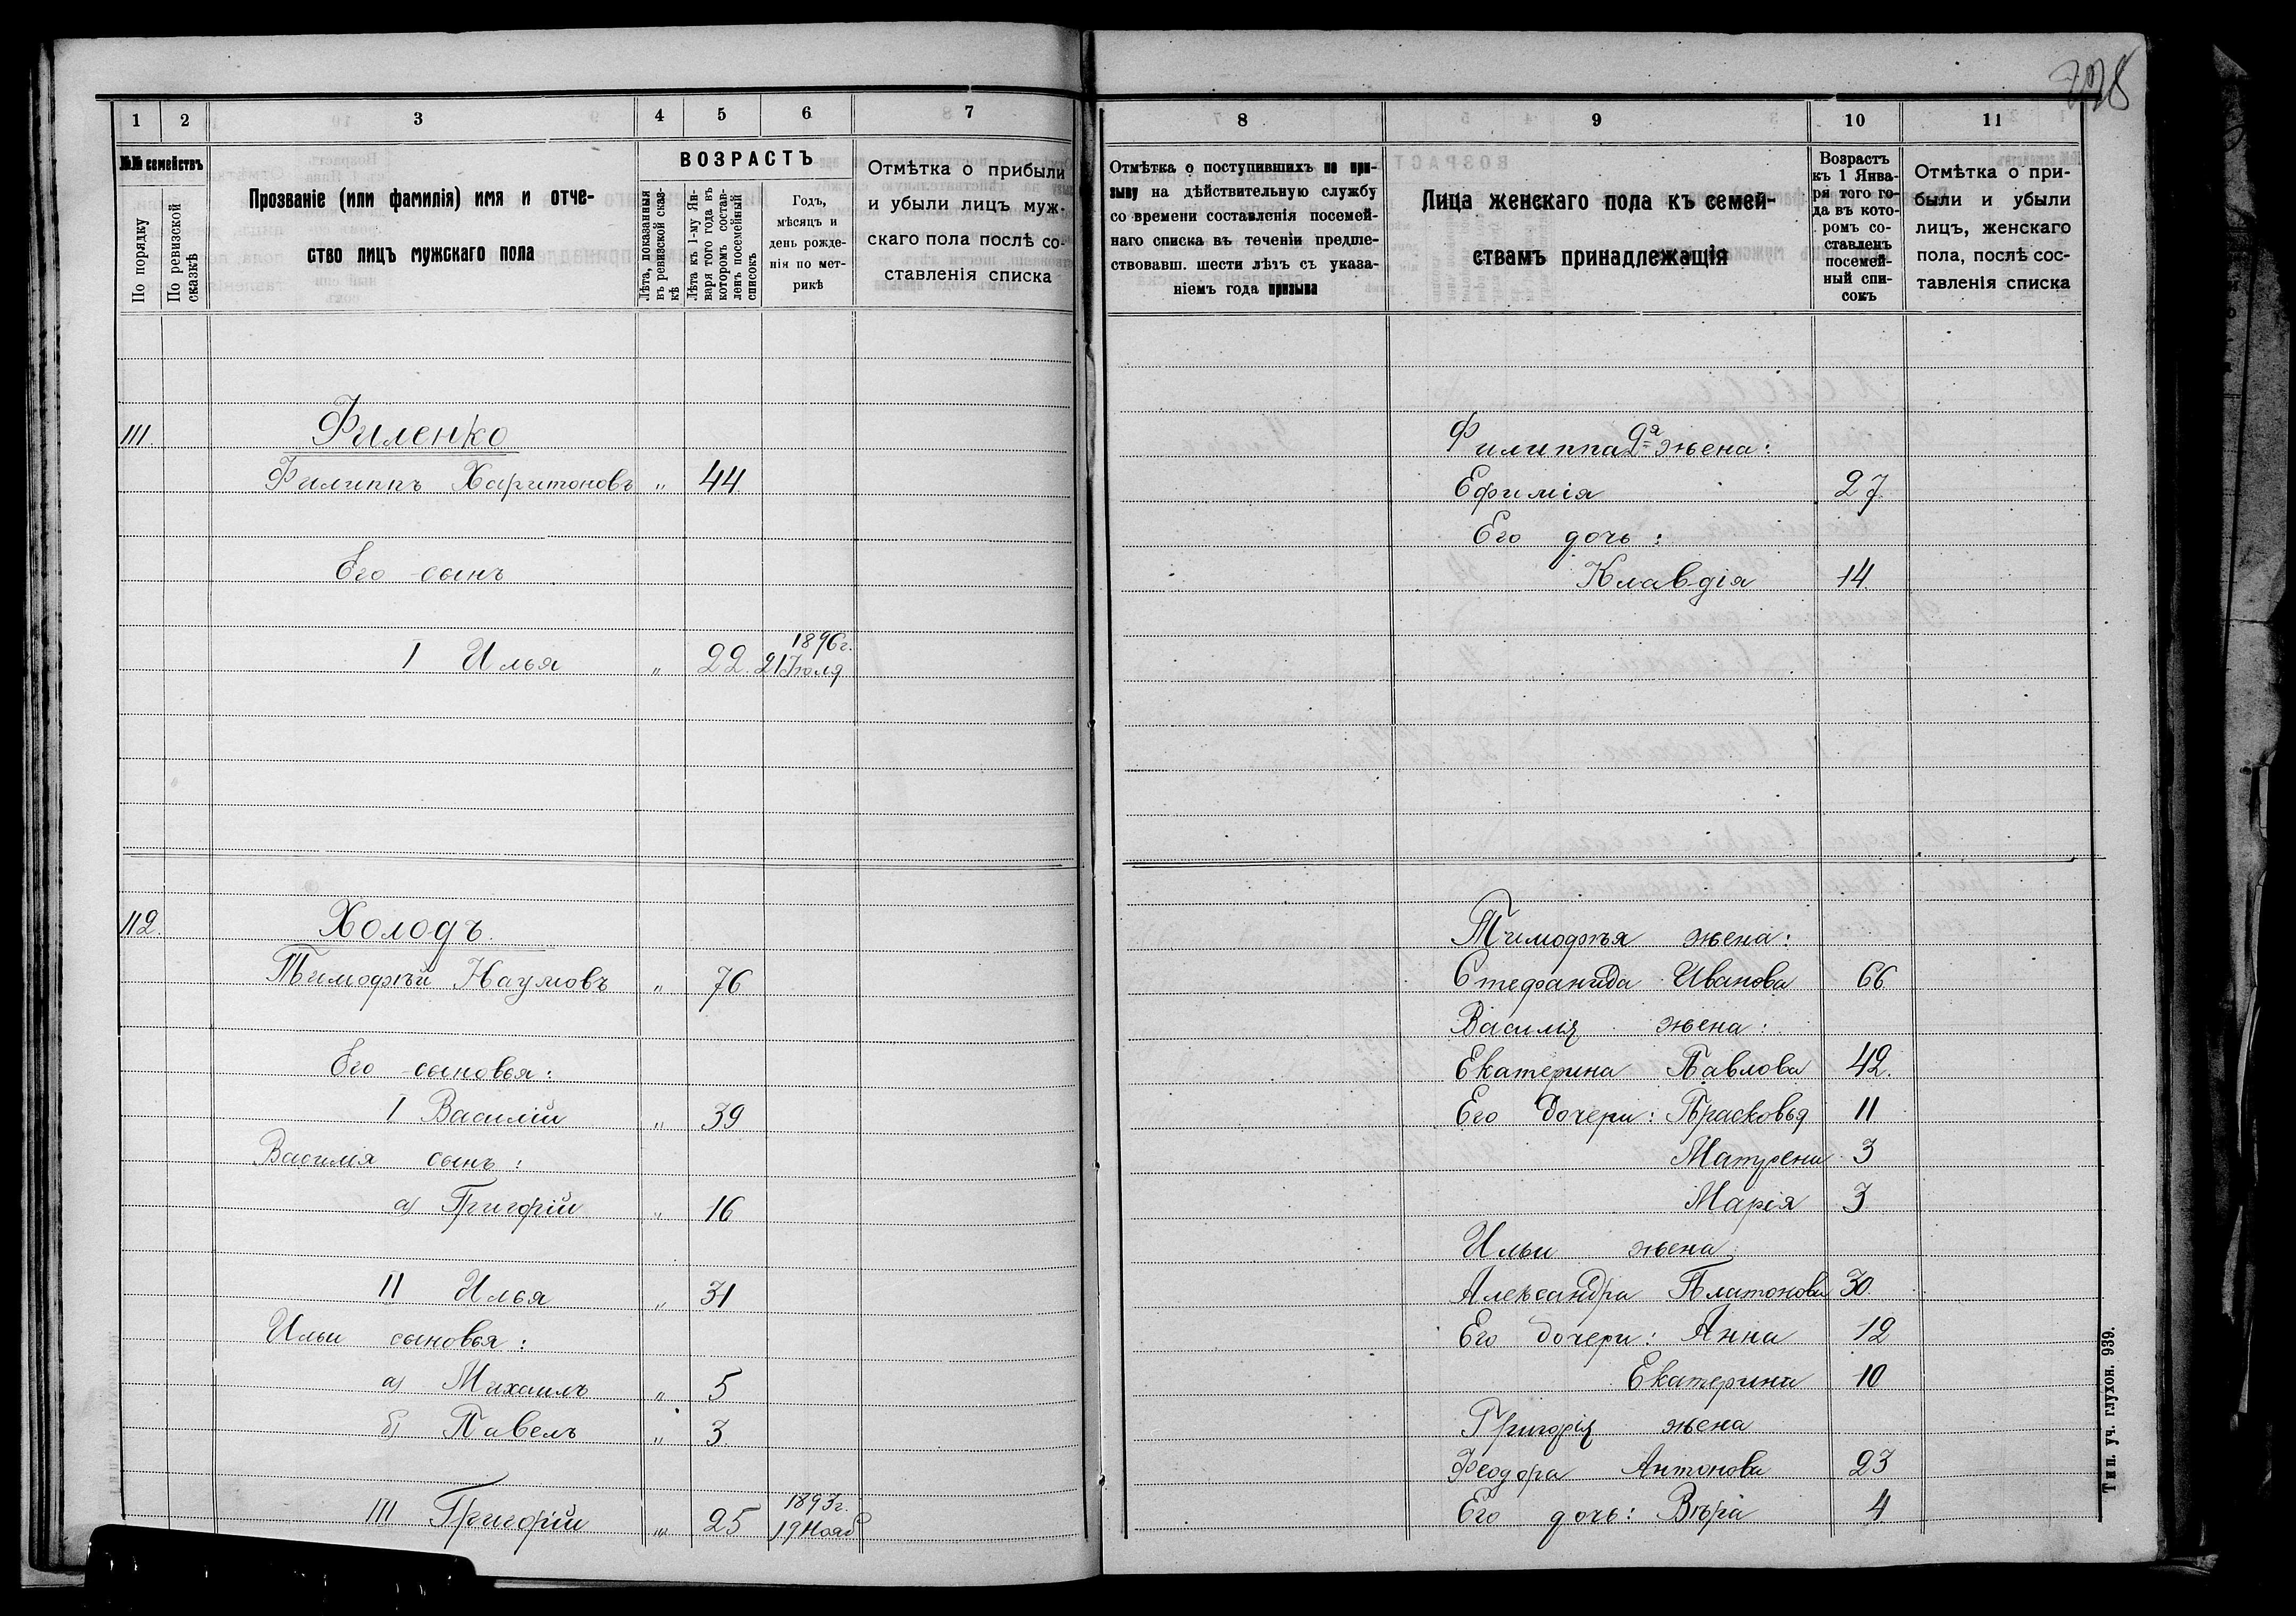 228
1 2 3 4 5 6 7
№№ семействъ
По порядку
По ревизской сказкѣ
Прозваніе (или фамилія) имя и отчество лицъ мужскаго пола
ВОЗРАСТЪ
Лѣта, показанныя въ ревизской сказкѣ
Лѣта къ 1-му Января того года въ которомъ составленъ посемейный списокъ
Годъ, мѣсяцъ и день рожденія по метрикѣ
Отмѣтка о прибыли и убыли лицъ мужскаго пола послѣ составленія списка
111 Филенко
Филиппъ Харитоновъ „ 44
Его сынъ
1896г.
I Илья „ 22. 21 Іюля
112. Холодъ.
Тимофѣй Наумовъ „ 76
Его сыновья:
I Василій „ 39
Василія сынъ:
а) Григорій „ 16
II Илья „ 31
Ильи сыновья:
а) Михаилъ „ 5
б) Павелъ „ 3
1893г.
III Григорій „ 25 19 Нояб
8 9 10 11
Отмѣтка о поступившихъ по призыву на дѣйствительную службу со времени составленія посемейнаго списка въ теченіи предшествовавш. шести лѣтъ съ указаніемъ года призыва
Лица женскаго пола къ семействамъ принадлежащія
Возрастъ къ 1 Января того года въ которомъ составленъ посемейный списокъ
Отмѣтка о прибыли и убыли лицъ, женскаго пола, послѣ составленія списка
Филиппа 2я жена:
Ефимія 27.
Его дочь:
Клавдія 14.
Тимофѣя жена:
Стефанида Иванова 66
Василія жена:
Екатерина Павлова 42.
Его дочери: Прасковья 11
Матрена 3
Марія 3.
Ильи жена:
Александра Платонова 30
Его дочери: Анна 12
Екатерина 10
Григорія жена
Феодора Антонова 23
Его дочь: Вѣра 4
Тип. уч. глухон. 939.